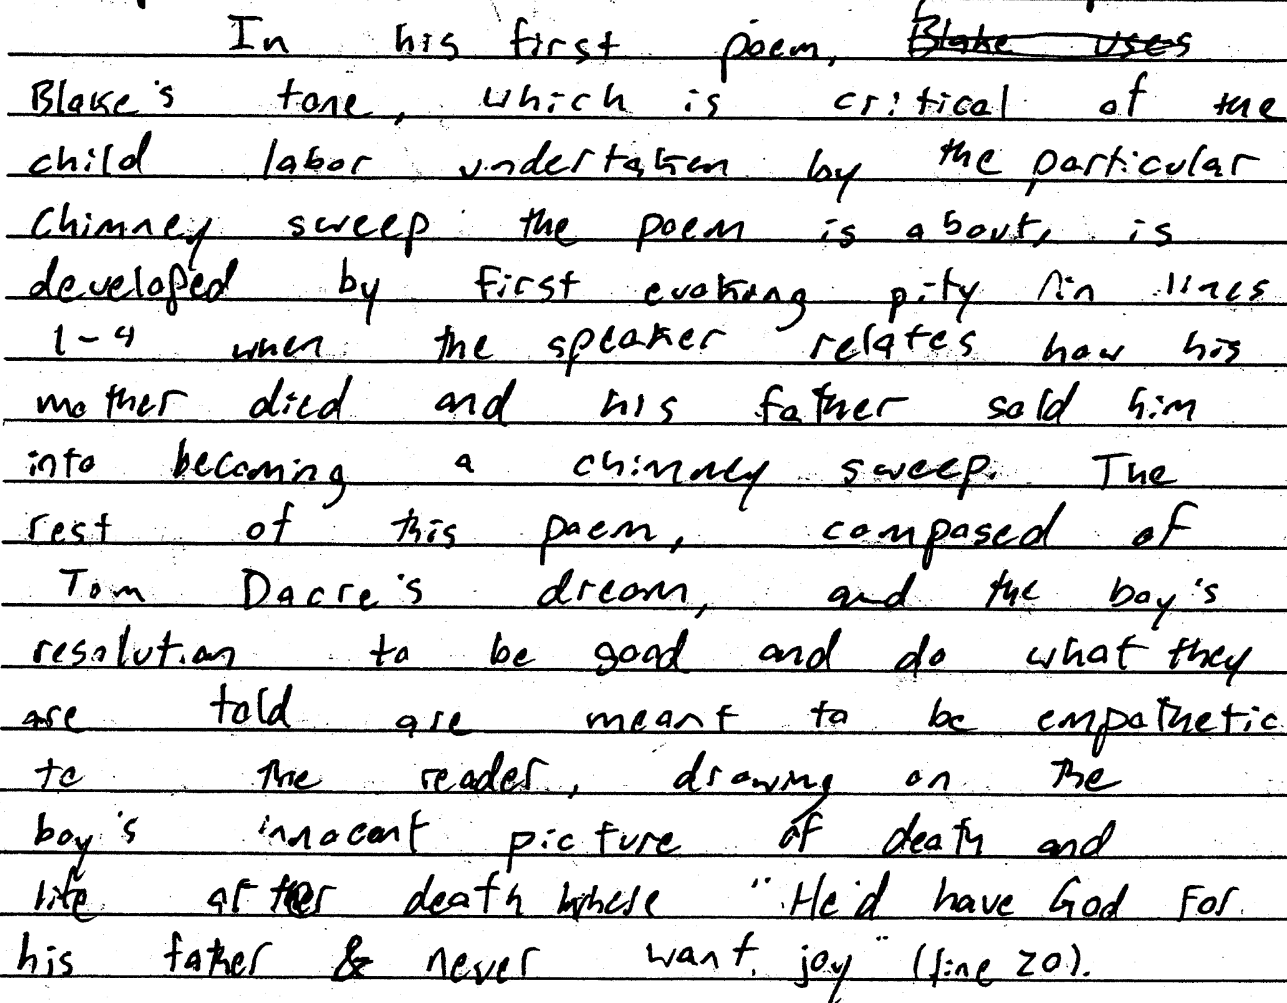 In his first poem, Blake uses
Blake's tone, which is critical of the
child labor undertaken by the particular
Chimney sweep the poem is about, is
developed by first evoking pity in lines
1-4 when the speaker relates how his
mother died and his father sold him
into becoming a chimney sweep. The
rest of this poem, composed of
Tom Dacre's dream, and the boy's
resolution to be good and do what they
are told are meant to be empathetic
to the reader, drawing on the
boy's innocent picture of death and
life after death where "He'd have God for
his father & never want joy" (line 20).